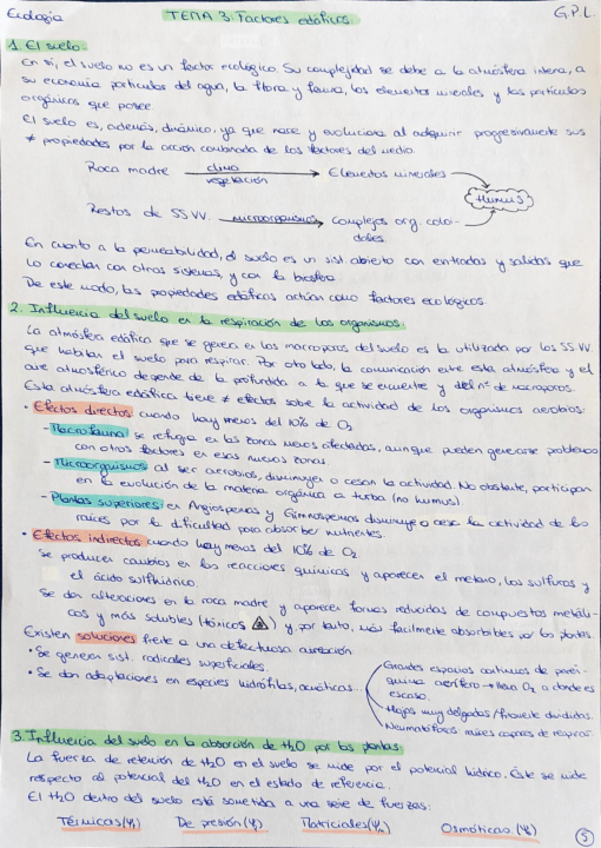 Ecología TEMA 3: Factores edáficos. G.P.L.
1. El suelo.
En sí, el suelo no es un factor ecológico. Su complejidad se debe a la atmósfera interna, a
su economía particular del agua, la flora y fauna, los elementos minerales y las partículas
orgánicas que posee.
El suelo es, además, dinámico, ya que nace y evoluciona al adquirir progresivamente sus
≠ propiedades por la acción combinada de los factores del medio.
Roca madre clima vegetación → Elementos minerales
Humus
Restos de SS.VV. microorganismos → Complejos org. coloi-
dales.
En cuanto a la permeabilidad, el suelo es un sist. abierto con entradas y salidas que
lo conectan con otros sistemas, y con la biosfera.
De este modo, las propiedades edáficas actúan como factores ecológicos.
2. Influencia del suelo en la respiración de los organismos.
La atmósfera edáfica que se genera en los macroporos del suelo es la utilizada por los SS.VV.
que habitan el suelo para respirar. Por otro lado, la comunicación entre esta atmósfera y el
aire atmosférico depende de la profundidad a la que se encuentre y del nº de macroporos.
Esta atmósfera edáfica tiene ≠ efectos sobre la actividad de los organismos aerobios:
• Efectos directos cuando hay menos del 10% de O2
- Macrofauna se refugia en las zonas menos afectadas, aunque pueden generarse problemas
con otros factores en esas nuevas zonas.
- Microorganismos al ser aerobios, disminuyen o cesan la actividad. No obstante, participan
en la evolución de la materia orgánica a turba (no humus).
- Plantas superiores en Angiospermas y Gimnospermas disminuye o cesa la actividad de las
raíces por la dificultad para absorber nutrientes.
• Efectos indirectos cuando hay menos del 10% de O2
Se producen cambios en las reacciones químicas y aparecen el metano, los sulfuros y
el ácido sulfhídrico.
Se dan alteraciones en la roca madre y aparecen formas reducidas de compuestos metáli-
cos y más solubles (tóxicos) y, por tanto, más fácilmente absorbibles por las plantas.
Existen soluciones frente a una defectuosa aireación
• Se generan sist. radicales superficiales.
• Se dan adaptaciones en especies hidrófilas, acuáticas...
Grandes espacios continuos de parén-
quima aerífero → lleva O2 a donde es
escaso.
Hojas muy delgadas / finamente divididas.
Neumatóforos raíces capaces de respirar.
3. Influencia del suelo en la absorción de H2O por las plantas.
La fuerza de retención de H2O en el suelo se mide por el potencial hídrico. Éste se mide
respecto al potencial del H2O en el estado de referencia.
El H2O dentro del suelo está sometida a una serie de fuerzas:
Térmicas (Ψt) De presión (Ψp) Matriciales (Ψm) Osmóticas (Ψs)
5